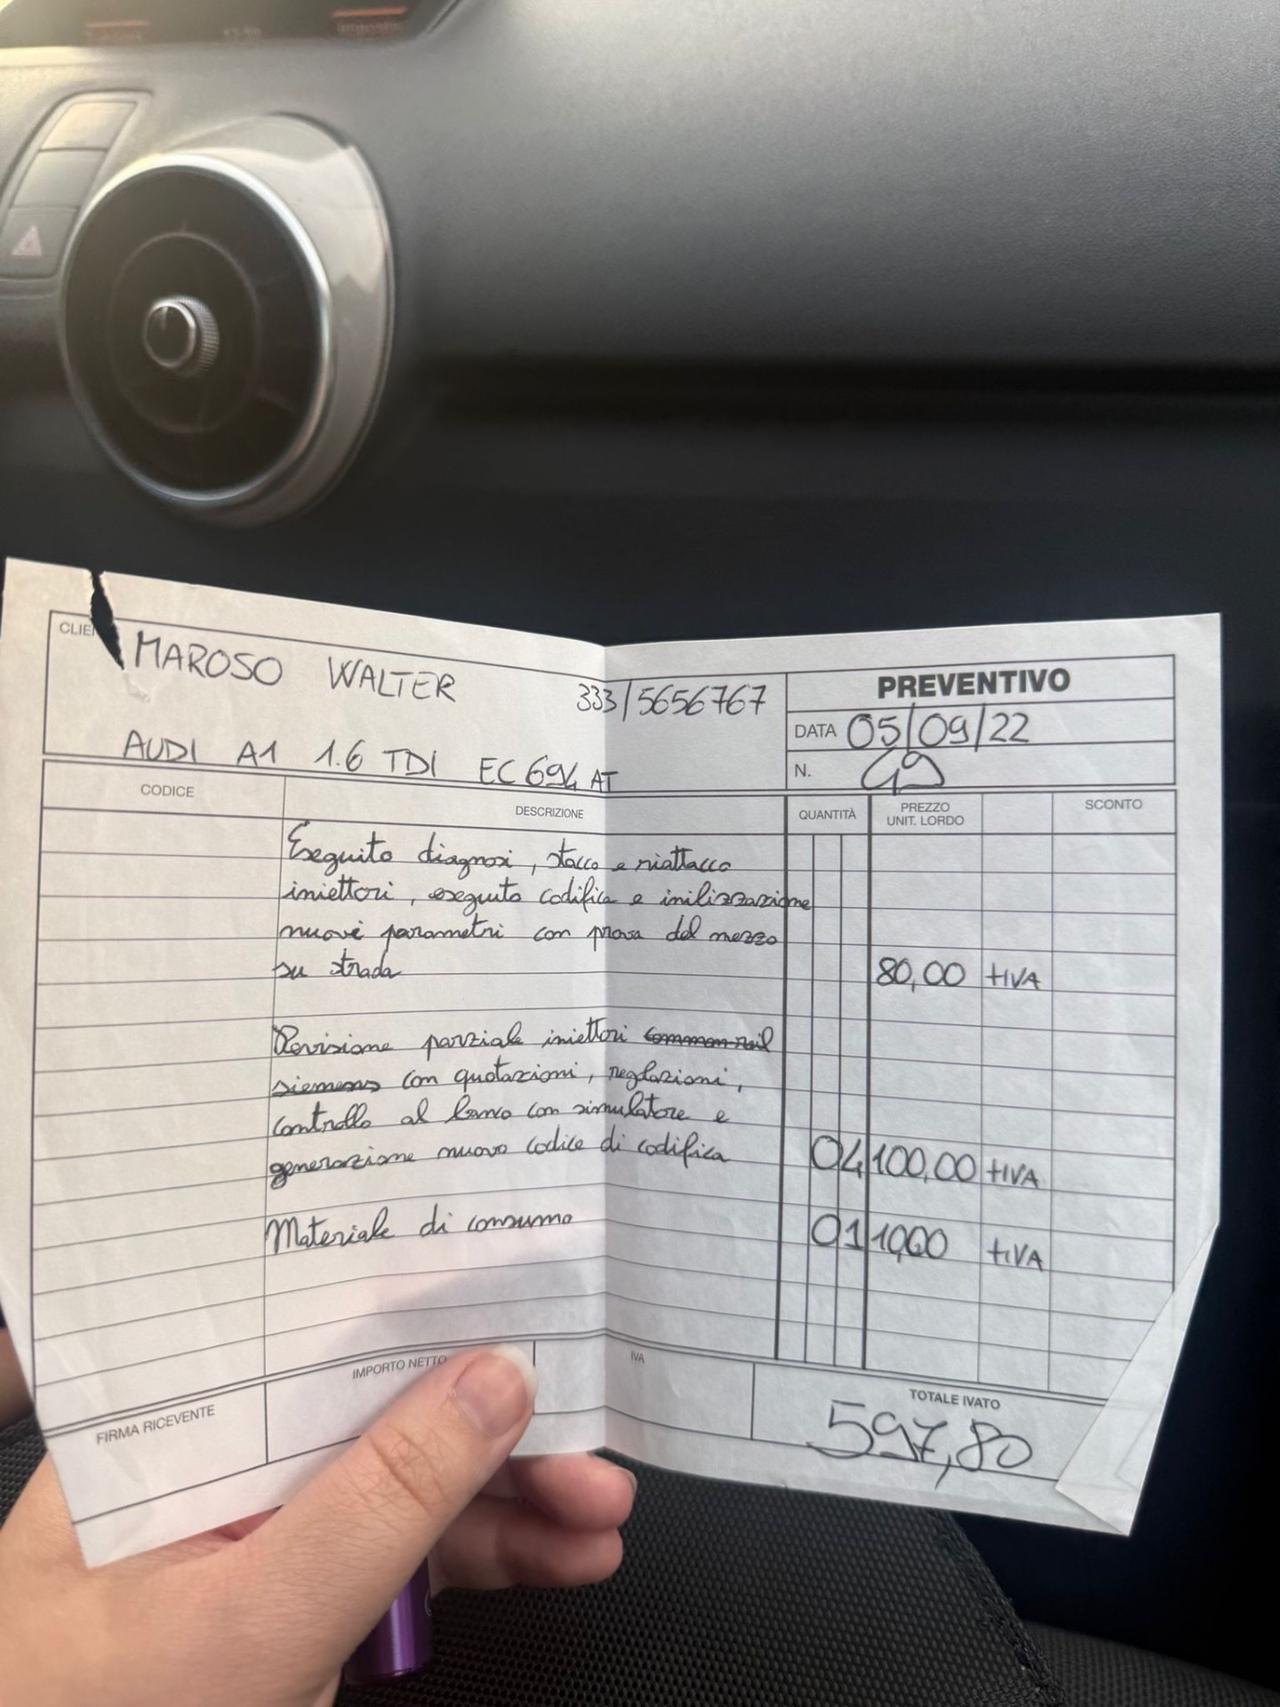 CLIE
MAROSO WALTER 333/5656767
AUDI A1 1.6 TDI EC694AT
PREVENTIVO
DATA 05/09/22
N. 49
CODICE DESCRIZIONE QUANTITÀ PREZZO UNIT. LORDO SCONTO
Eseguito diagnosi, stacco e riattacco
iniettori, eseguito codifica e inilizzazione
nuovi parametri con prova del mezzo
su strada 80,00 +IVA
Revisione parziale iniettori common rail
siemens con quotazioni, reglazioni,
controllo al banco con simulatore e
generazione nuovo codice di codifica 04 100,00 +IVA
Materiale di consumo 01 10,00 +IVA
FIRMA RICEVENTE IMPORTO NETTO IVA TOTALE IVATO
597,80